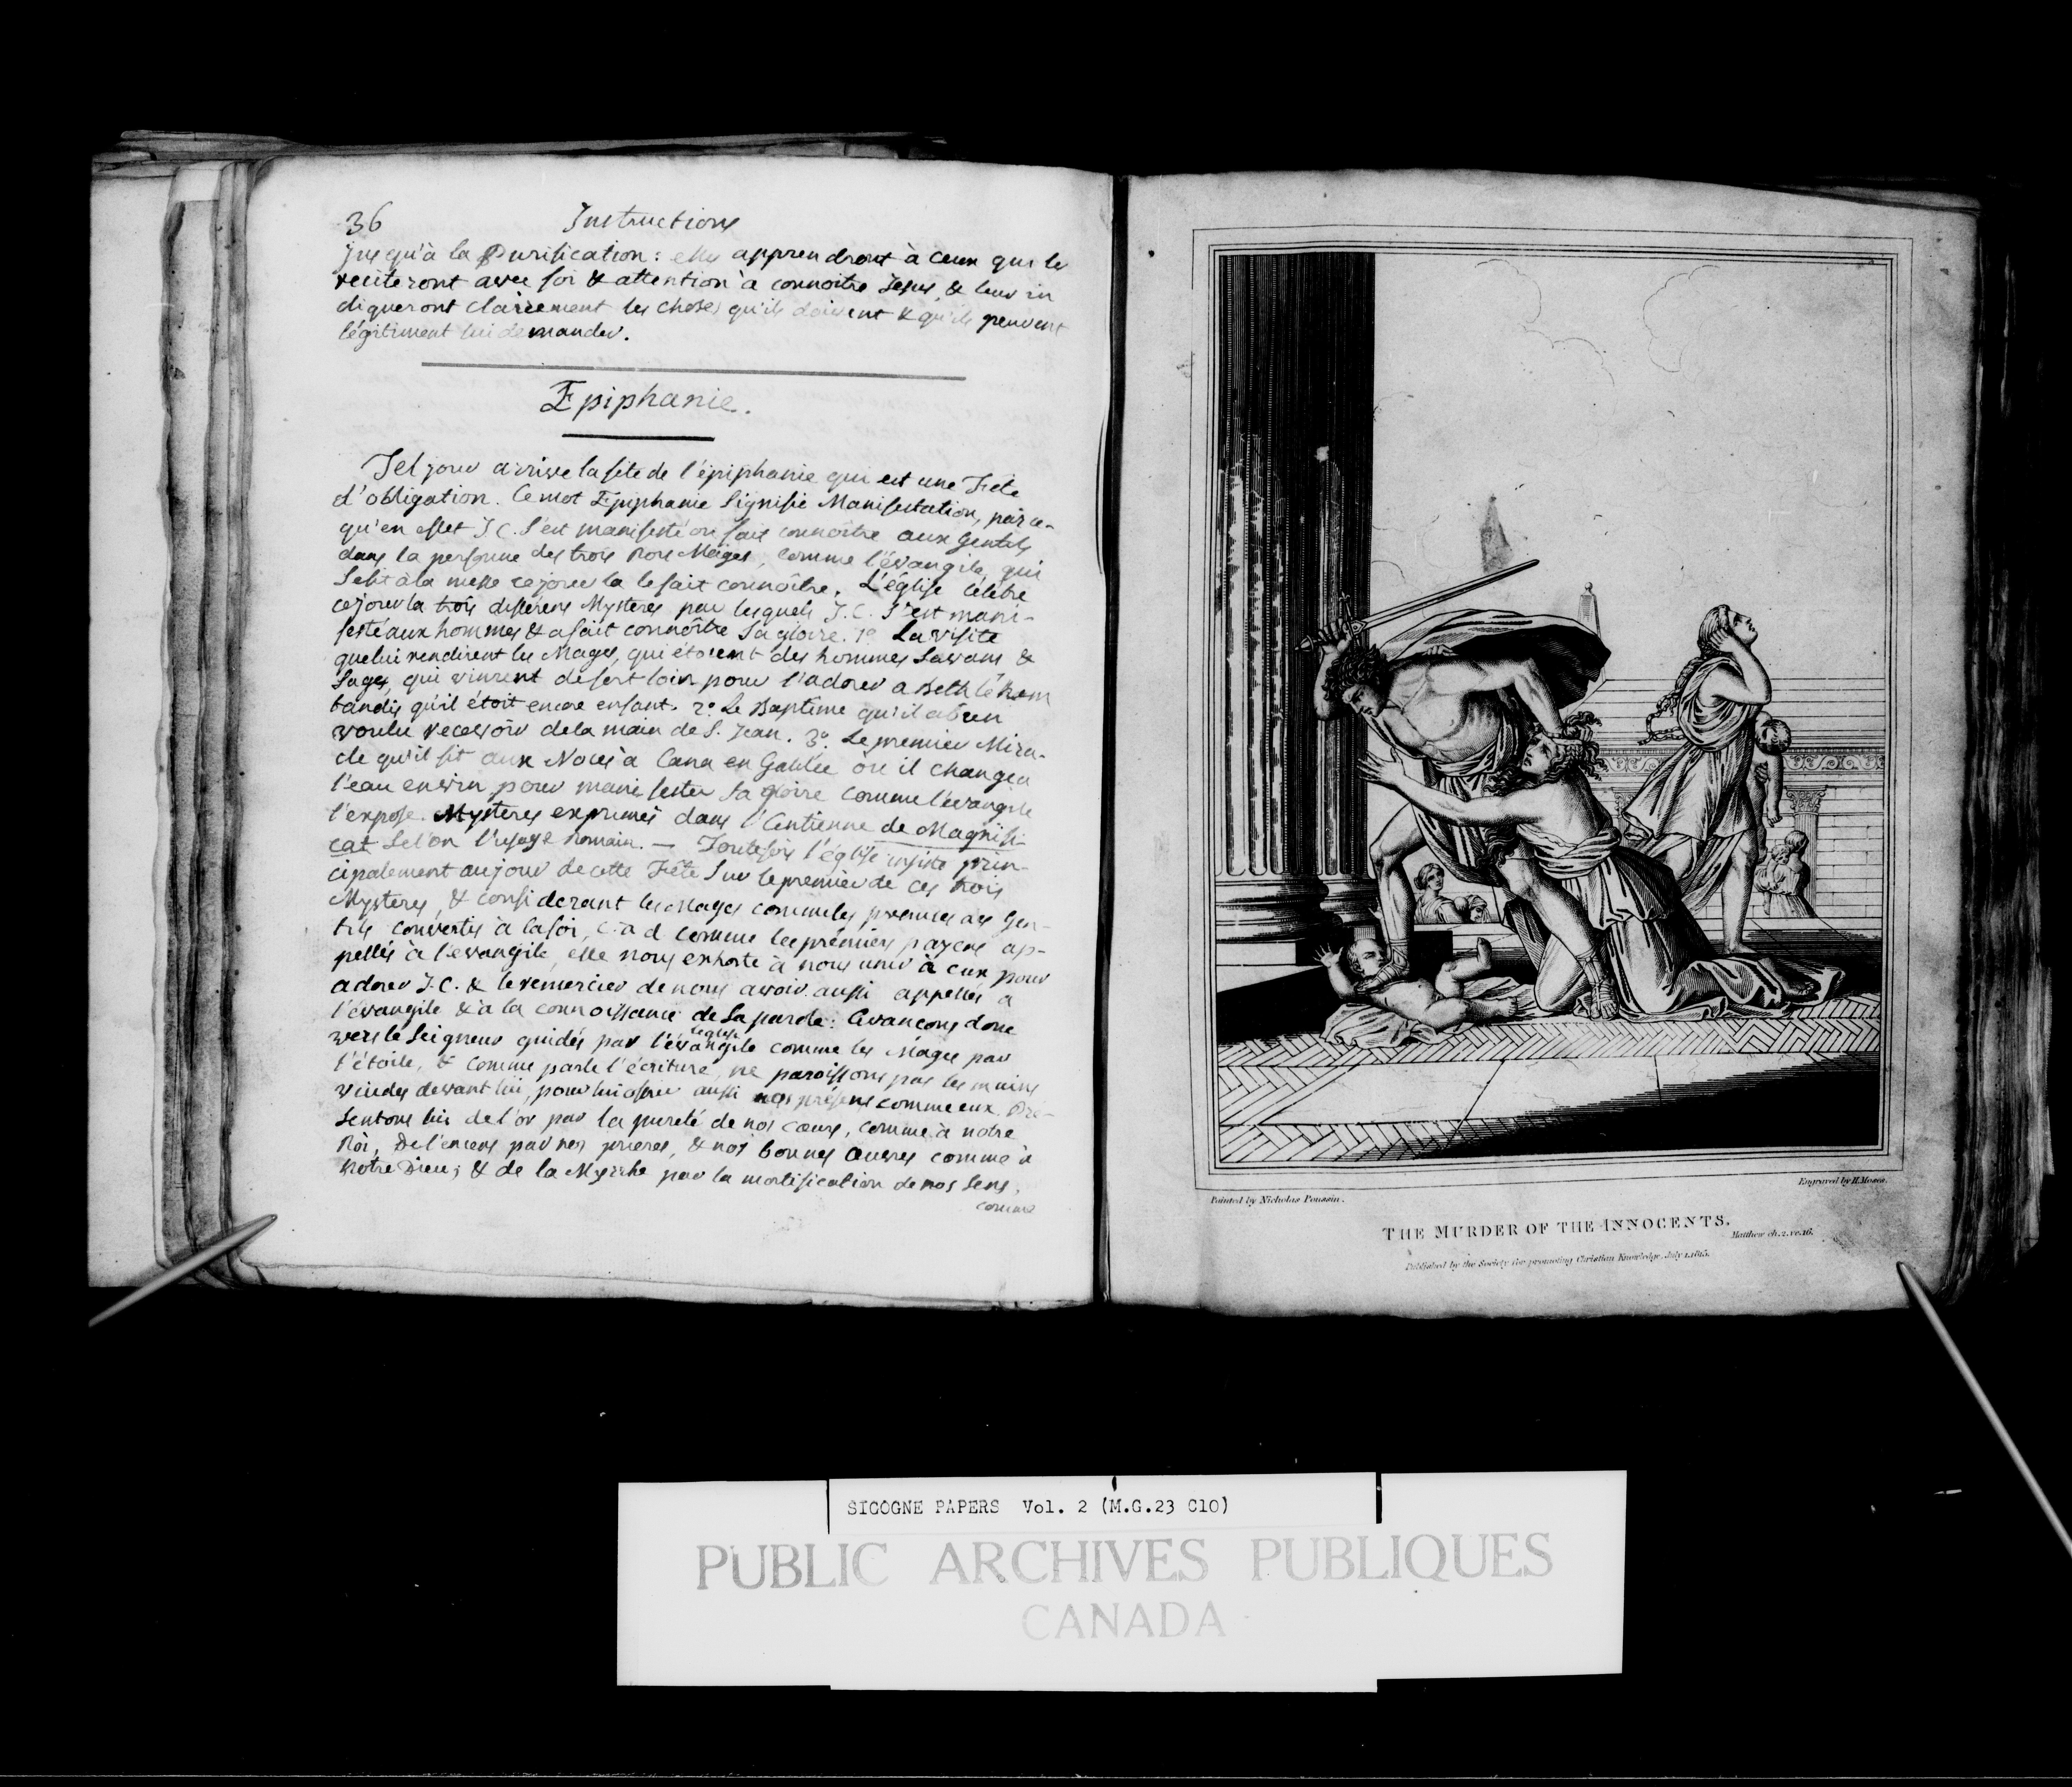 36 Instructions
jusqu'à la Purification: elles apprendront à ceux qui le
reciteront avec foi & attention à connoitre Jesus, & leur in
diqueront clairement les choses qu'ils doivent & qu'ils peuvent
légitiment lui demander.
Epiphanie.
Tel jour arrive la fête de l'épiphanie qui est une Fête
d'obligation. Ce mot Epiphanie Signifie Manifestation, parce-
qu'en effet J.C. S'est manifesté ou fait connoître aux Gentils
dans la personne des trois Rois Mages, comme l'évangile, qui
Se lit à la messe ce jour la le fait connoître. L'église célébre
ce jour la trois differens Mystères par lesquels J.C. S'est mani-
festé aux hommes & a fait connoître Sa gloire. 1º La visite
que lui rendirent les Mages, qui étoient des hommes Savans &
Sages, qui vinrent de fort loin pour l'adorer a Bethléhem
tandis qu'il étoit encore enfant. 2º Le Baptême qu'il a bien
voulu recevoir de la main de S. Jean. 3º Le premier Mira-
cle qu'il fit aux Noces à Cana en Galilée où il changea
l'eau en vin pour manifester Sa gloire comme l'évangile
l'expose. Mystères exprimés dans l'Antienne de Magnifi-
cat Selon l'usage Romain. — Toutefois l'église insiste prin-
cipalement au jour de cette Fête Sur le premier de ces trois
Mystères, & considerant les Mages comme les premices des Gen-
tils convertis à la foi, c. à d. comme les prémiers payens ap-
pellés à l'evangile, elle nous exhorte à nous unir à eux pour
adorer J.C. & le remercier de nous avoir aussi appellés à
l'évangile & à la connoissance de Sa parole: Avançons donc
vers le Seigneur guidés par l'évangile comme les Mages par
l'église
l'étoile, & comme parle l'écriture, ne paroissons pas les mains
vuides devant lui, pour lui offrir aussi nos présens comme eux. Pré-
Sentons lui de l'or par la pureté de nos cœurs, comme à notre
Roi, De l'encens par nos prieres, & nos bonnes Œuvres comme à
notre Dieu; & de la Myrrhe par la mortification de nos Sens,
comme
Painted by Nicholas Poussin.
Engraved by H. Moses.
THE MURDER OF THE INNOCENTS.
Matthew ch. 2. ve. 16.
Published by the Society for promoting Christian Knowledge, July 1. 1815.
SICOGNE PAPERS Vol. 2 (M.G.23 C10)
PUBLIC ARCHIVES PUBLIQUES
CANADA